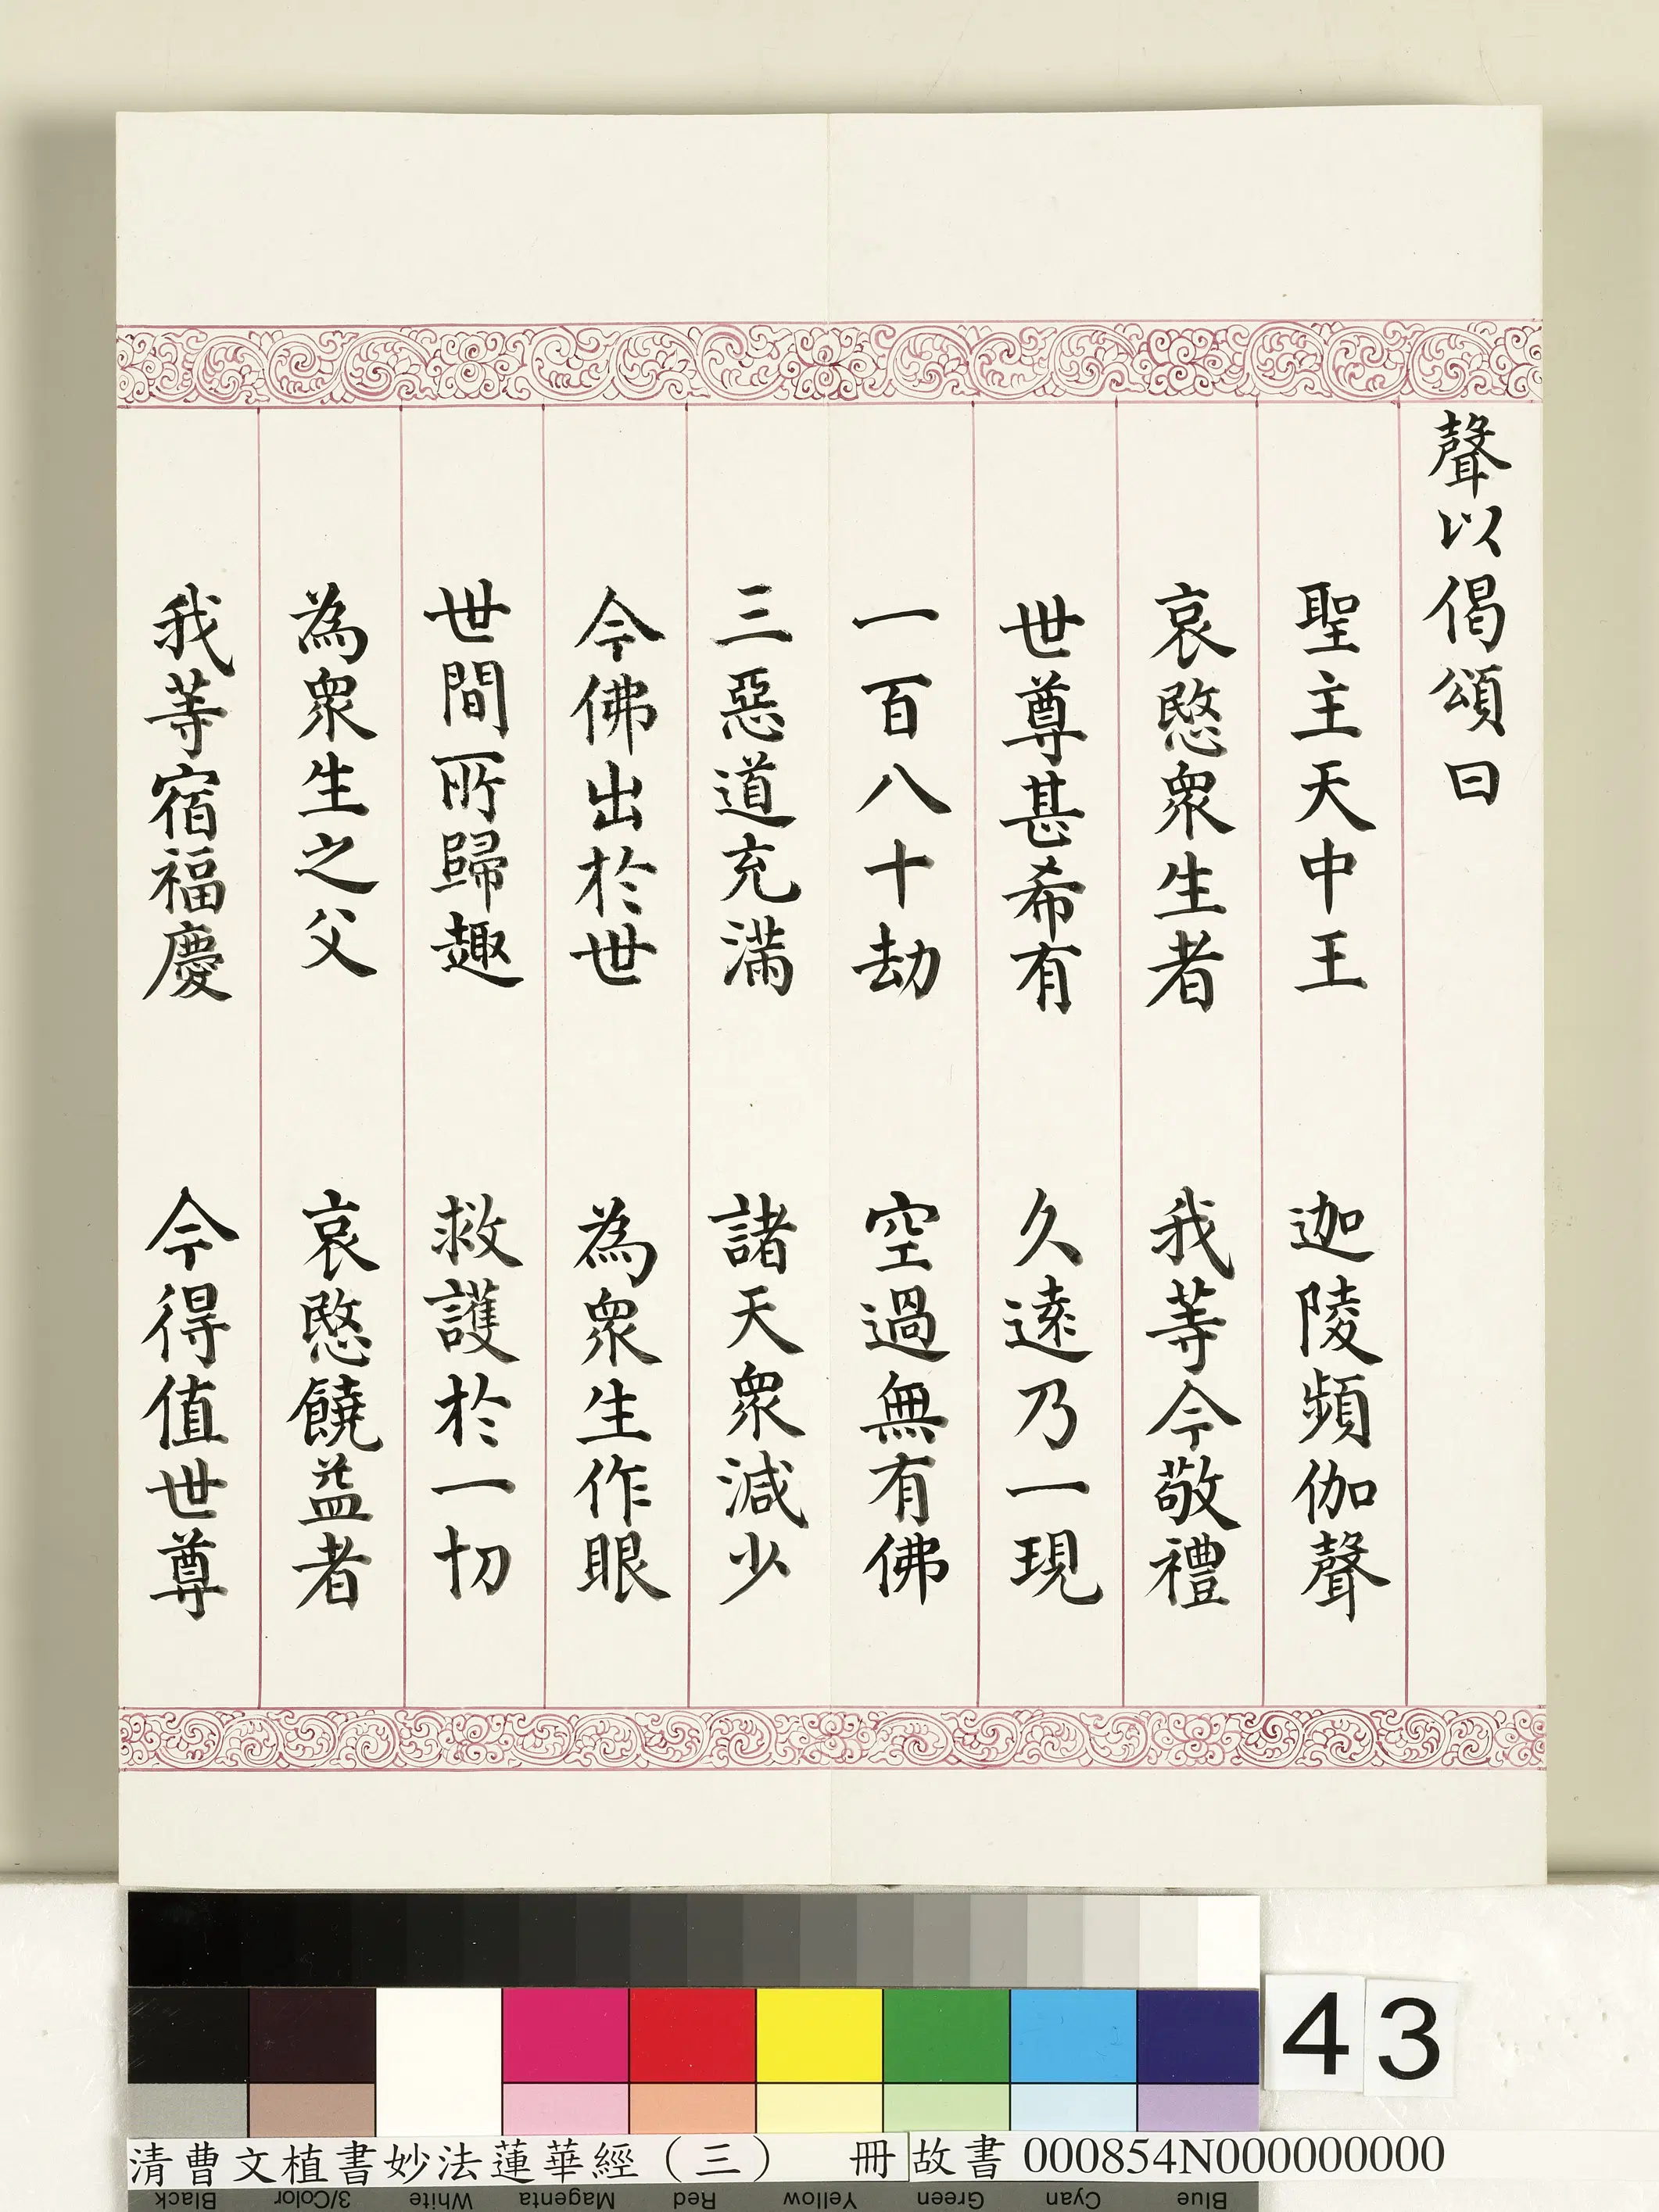 聲以偈頌曰
聖主天中王 迦陵頻伽聲
哀愍衆生者 我等今敬禮
世尊甚希有 久遠乃一現
一百八十劫 空過無有佛
三惡道充滿 諸天衆減少
今佛出於世 為衆生作眼
世間所歸趣 救護於一切
為衆生之父 哀愍饒益者
我等宿福慶 今得值世尊
43
清曹文植書妙法蓮華經（三） 冊 故書 000854N000000000
Black 3/Color White Magenta Red Yellow Green Cyan Blue